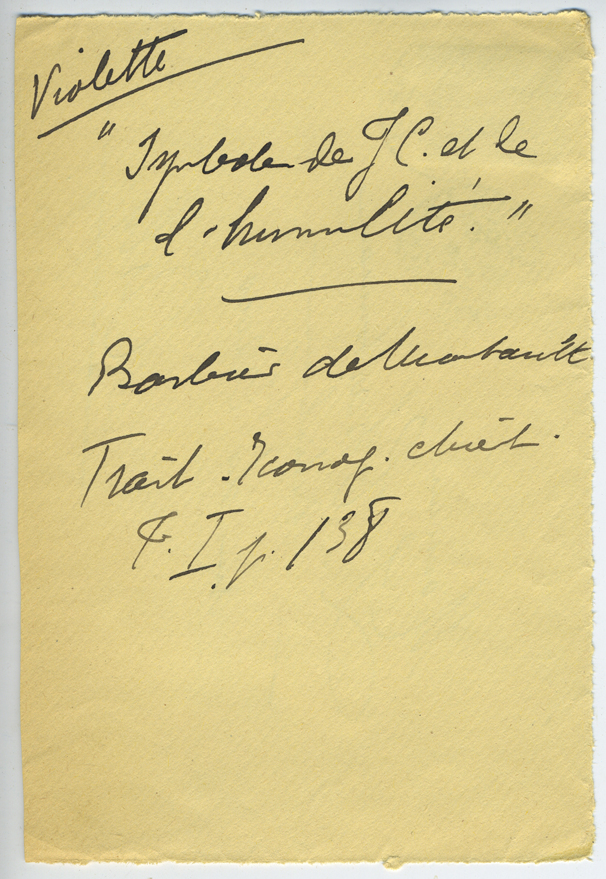 Violette
" Symbole de J C. et de
l'humilité. "
Barbier de Montault
Trait. Iconog. chrét.
T. I p. 138